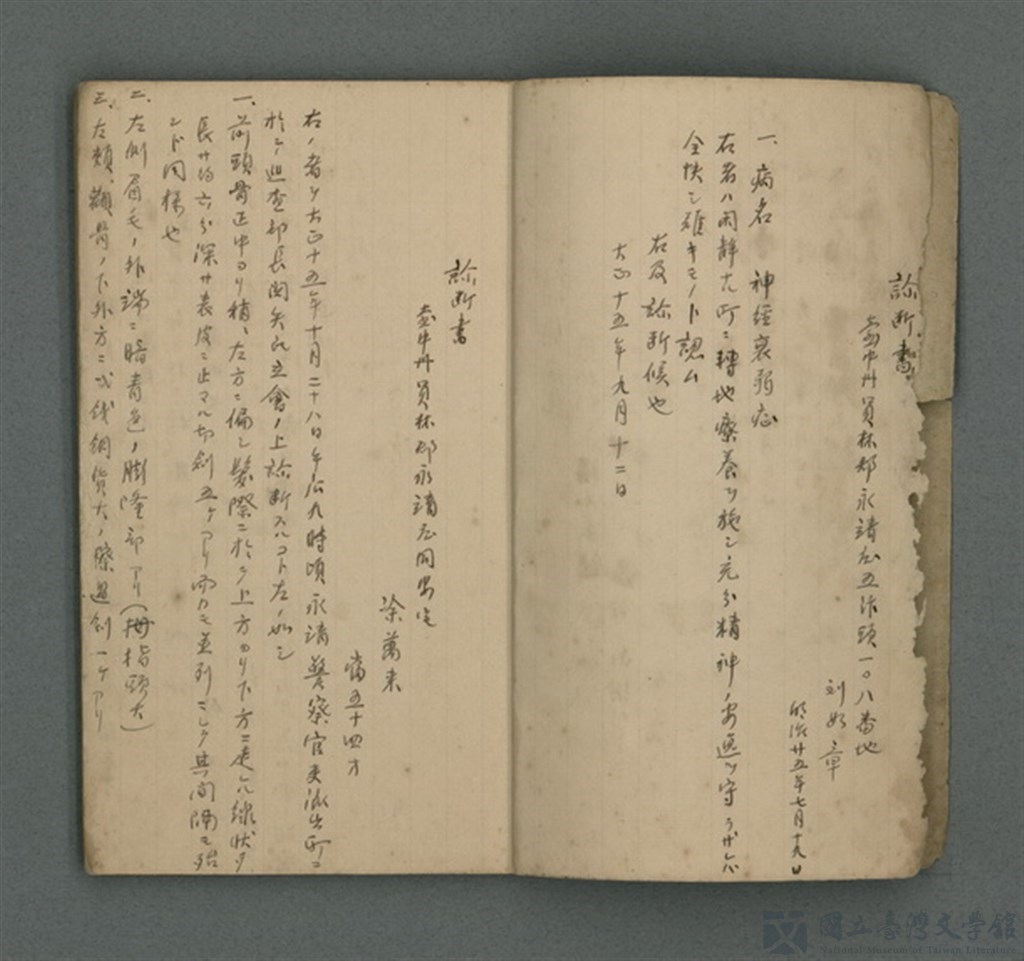 診断書
臺中州員林郡永靖庄五汴頭一〇八番地
劉
明治廿五年七月十九日
一、病名 神経衰弱症
右者ハ閑静ナル町ニ轉地療養ヲ施シ充分精神ノ安逸ヲ守ラザレバ
全快シ難キモノト認ム
右及診断候也
大正十五年九月十二日
診断書
臺中州員林郡永靖庄同安宅
涂萬来
當五十四才
右ノ者ヲ大正十五年十月二十八日午后九時頃永靖警察官吏派出所ニ
於テ巡査部長関矢氏立會ノ上診断スルコト左ノ如シ
一、前頭骨正中ヨリ稍、左方ニ偏シ髪際ニ於テ上方ヨリ下方ニ走ル線状ヲ
長サ約六分深サ表皮ニ止マル切創五ケアリ而カモ並列ニシテ其間隔モ殆
ンド同様也
二、左側眉毛ノ外端ニ暗青色ノ膨隆部アリ(拇指頭大)
三、左頬、顴骨ノ下外方ニ弐銭銅貨大ノ擦過創一ケアリ
國立臺灣文學館
National Museum of Taiwan Literature